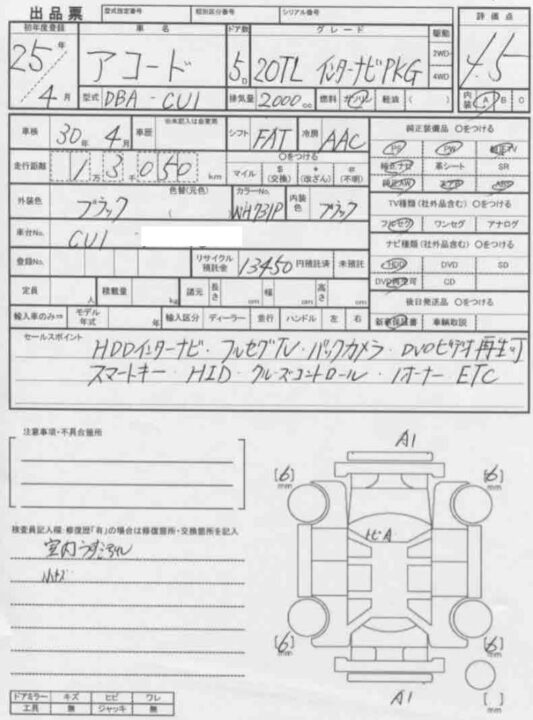 出品票 型式指定番号 類別区分番号 シリアル番号
初年度登録 車名 ドア数 グレード 駆動 評価点
25年 アコード 5D 20TL インターナビPKG 2WD 4.5
4月 型式 DBA-CU1 排気量 2000cc 燃料 ガソリン 軽油 ( ) 4WD 内装 A B C
車検 30年 4月 車歴 ※未記入は自家用 シフト FAT 冷房 AAC 純正装備品 ○をつける
走行距離 1万3千050km ○をつける PS PW 純正TV
マイル $(交換) *(改ざん) #(不明) 純正ナビ 革シート SR
純正AW エアB ABS
外装色 ブラック 色替(元色) ( カラーNo. NH731P 内装色 ブラック TV種類(社外品含む) ○をつける
フルセグ ワンセグ アナログ
車台No. CU1 ナビ種類(社外品含む) ○をつける
登録No. リサイクル預託金 13450円預託済 未預託 HDD DVD SD
DVD再生可 CD
定員 人 積載量 kg 諸元 長さ cm 幅 cm 高さ cm 後日発送品 ○をつける
輸入車のみ⇒ モデル年式 年 輸入区分 ディーラー 並行 ハンドル 左 右 新車保証書 車輌取説
セールスポイント
HDDインターナビ・フルセグTV・バックカメラ・DVDビデオ再生可
スマートキー・HID・クルーズコントロール・1オーナー ETC
注意事項・不具合箇所
A1
[6]mm [6]mm
検査員記入欄:修復歴「有」の場合は修復箇所・交換箇所を記入
トビA
室内うすごれ
小キズ
[6]mm [6]mm
A1
[ ]mm
ドアミラー キズ ヒビ ワレ
工具 無 ジャッキ 無